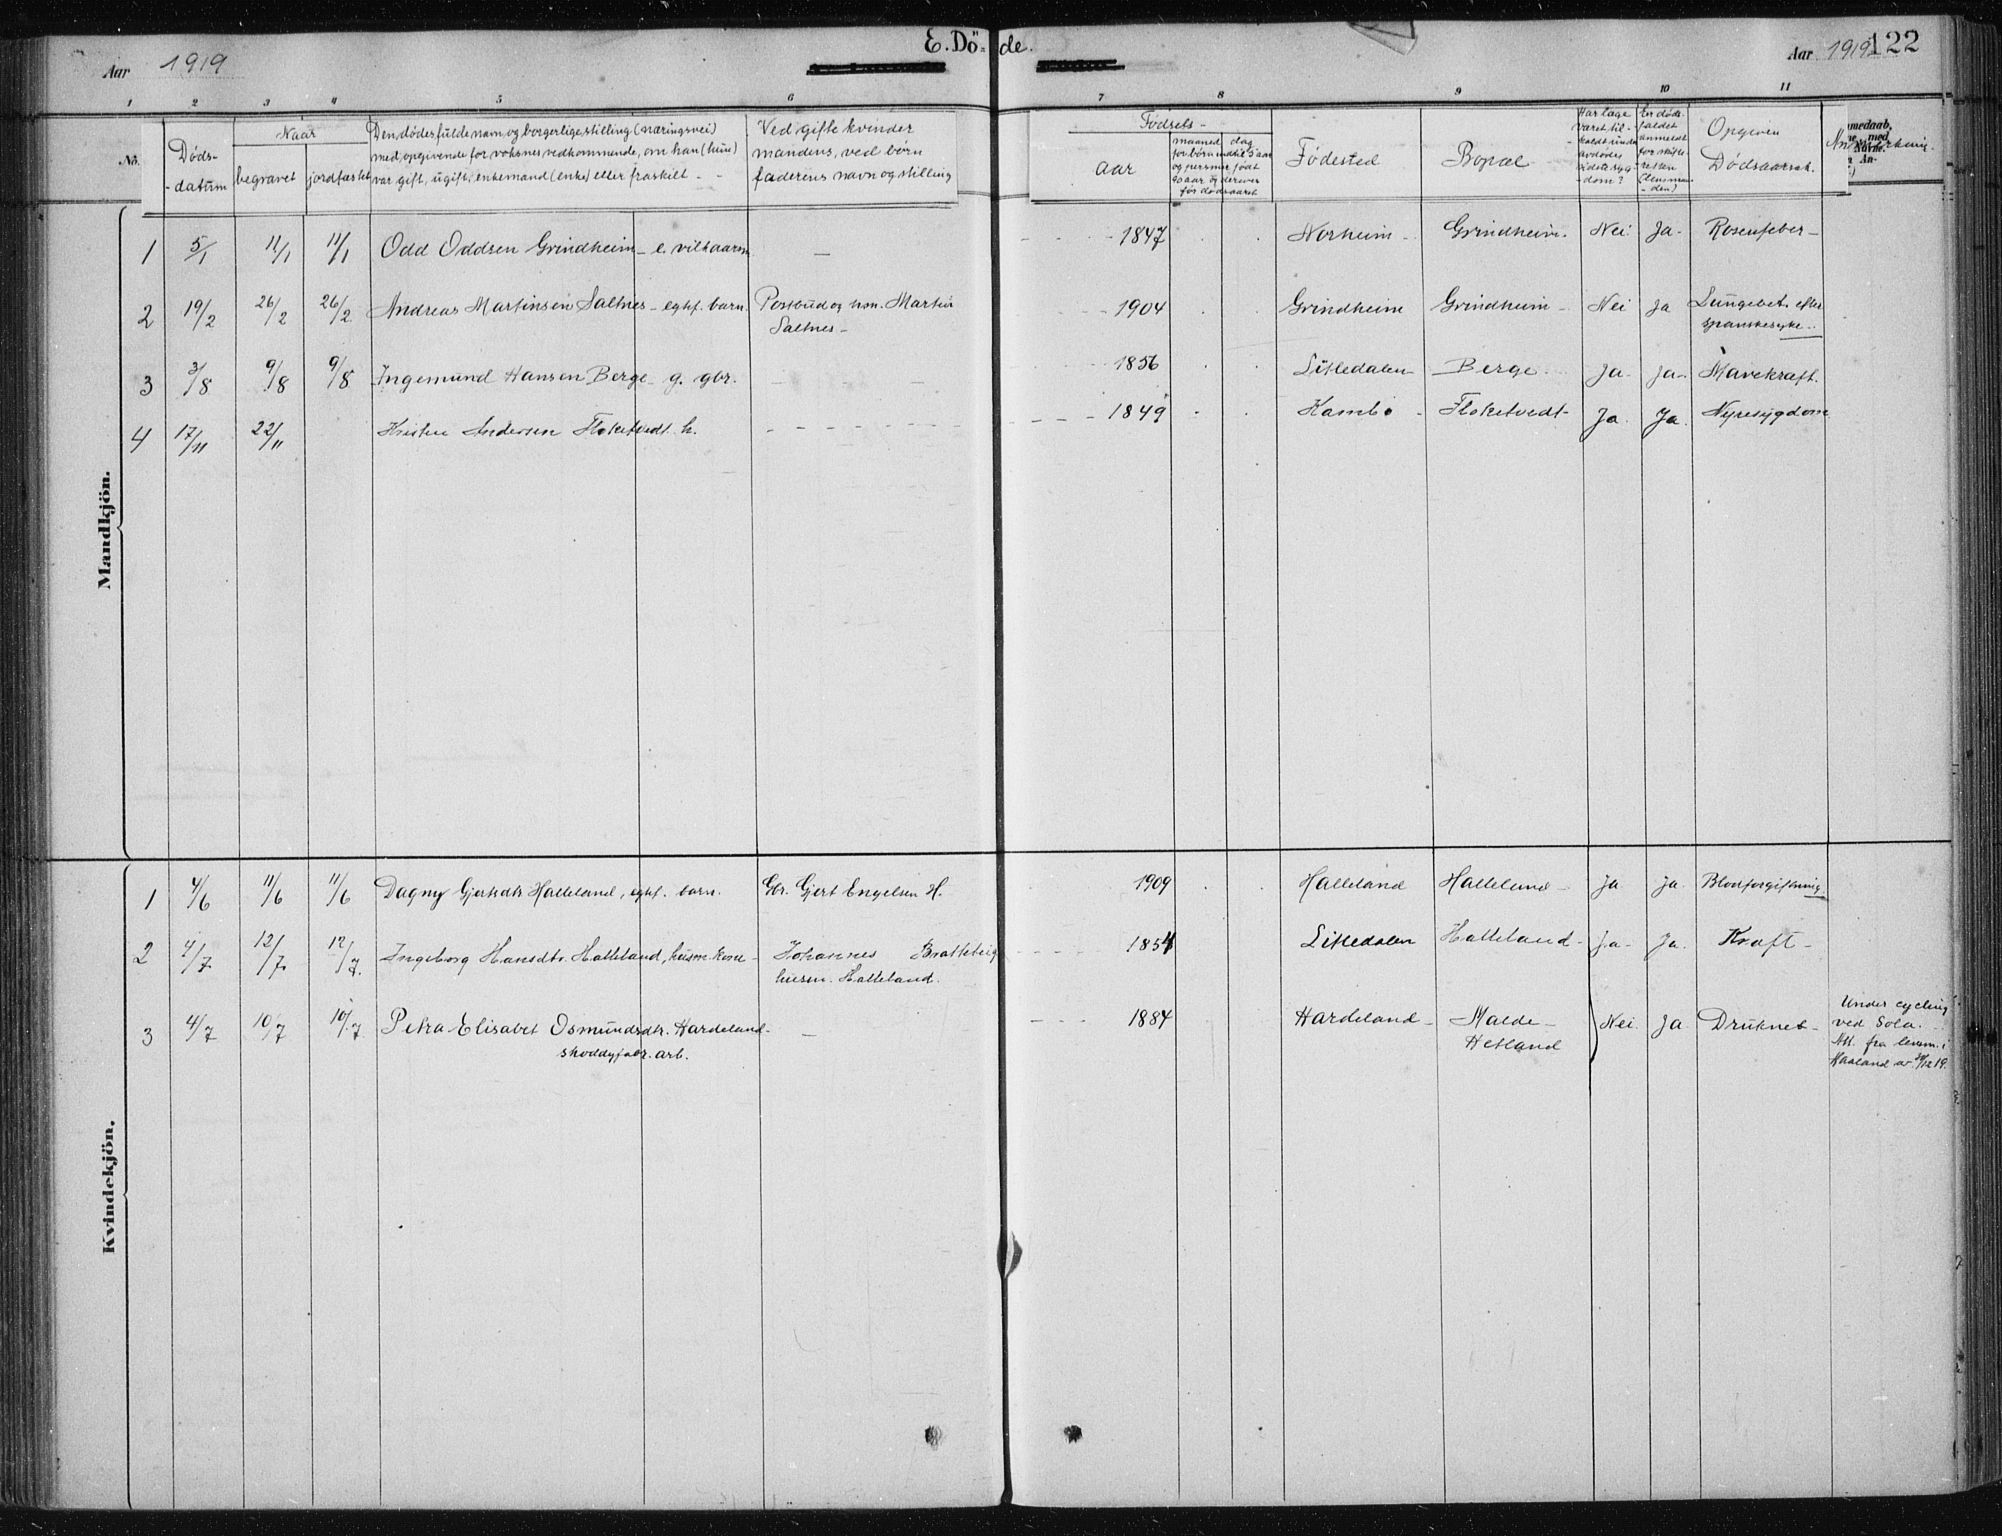 E. Döde.
Aar 1919
Aar 1919
122
1 2 3 4 5 6 7 8 9 10 11
No.
Døds-datum
Naar
begravet
jordfæstet
Den dødes fulde navn og borgerlige stilling (næringsvei)
med opgivende for voksnes vedkommende, om han (hun)
var gift, ugift, enkemand (enke) eller fraskilt
Ved gifte kvinder
mandens, ved børn
faderens navn og stilling
Fødsels-
aar
maaned dag
Fødested
Bopæl
Har læge været til-kaldt under avdødes sidste syg-dom?
Er døds-faldet anmeldt for skifte-retten (lensman-den)
Opgiven
Dødsaarsak.
Anmerkning.
Mandkjön.
1 5/1 11/1 11/1 Odd Oddsen Grindheim - e. vilkaarm. — 1847 Norheim - Grindheim. Nei Ja - Rosenfeber -
2 19/2 26/2 26/2 Andreas Martinsen Saltnes - egtf. barn. Postbud og hsm. Martin 1904 Grindheim Grindheim - Nei Ja Lungebet. efter
Saltnes - spanskesyke.
3 3/8 9/8 9/8 Ingemund Hansen Berge - g. gbr. 1856 Litledalen Berge. Ja - Ja - Mavekræft.
4 17/11 22/11 Kristen Andersen Floketvedt h. 1849 Kambo - Floketvedt - Ja. Ja. Nyresygdom
Kvindekjön.
1 4/6 11/6 11/6 Dagny Gjertsdtr Halleland, egtf. barn. Gbr. Gjert Engelsen H. 1909 Halleland Halleland - Ja Ja Blodforgiftning
2 4/7 12/7 12/7. Ingeborg Hansdtr. Halleland, husm. kone - Johannes Bratteteig 1854 Litledalen Halleland - Ja - Ja. Kræft -
husm. Halleland.
3 4/7 10/7 10/7 Petra Elisabet Osmundsdtr. Hardeland - — 1884 Hardeland - Malde - Nei. Ja Druknet -
shoddyfabr. arb. Hetland
Under cycling
ved Sola.
Att. fra lensm. i
Haaland av